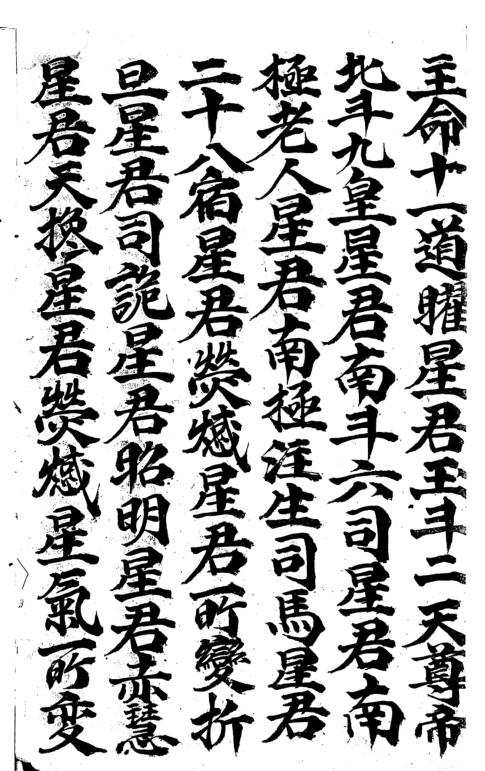 主命十一道曜星君玉斗二天尊帝
北斗九皇星君南斗六司星君南
極老人星君南極注生司馬星君
二十八宿星君熒惑星君一所變折
旦星君司詭星君昭明星君赤慧
星君天攙星君熒惑星氣一所变